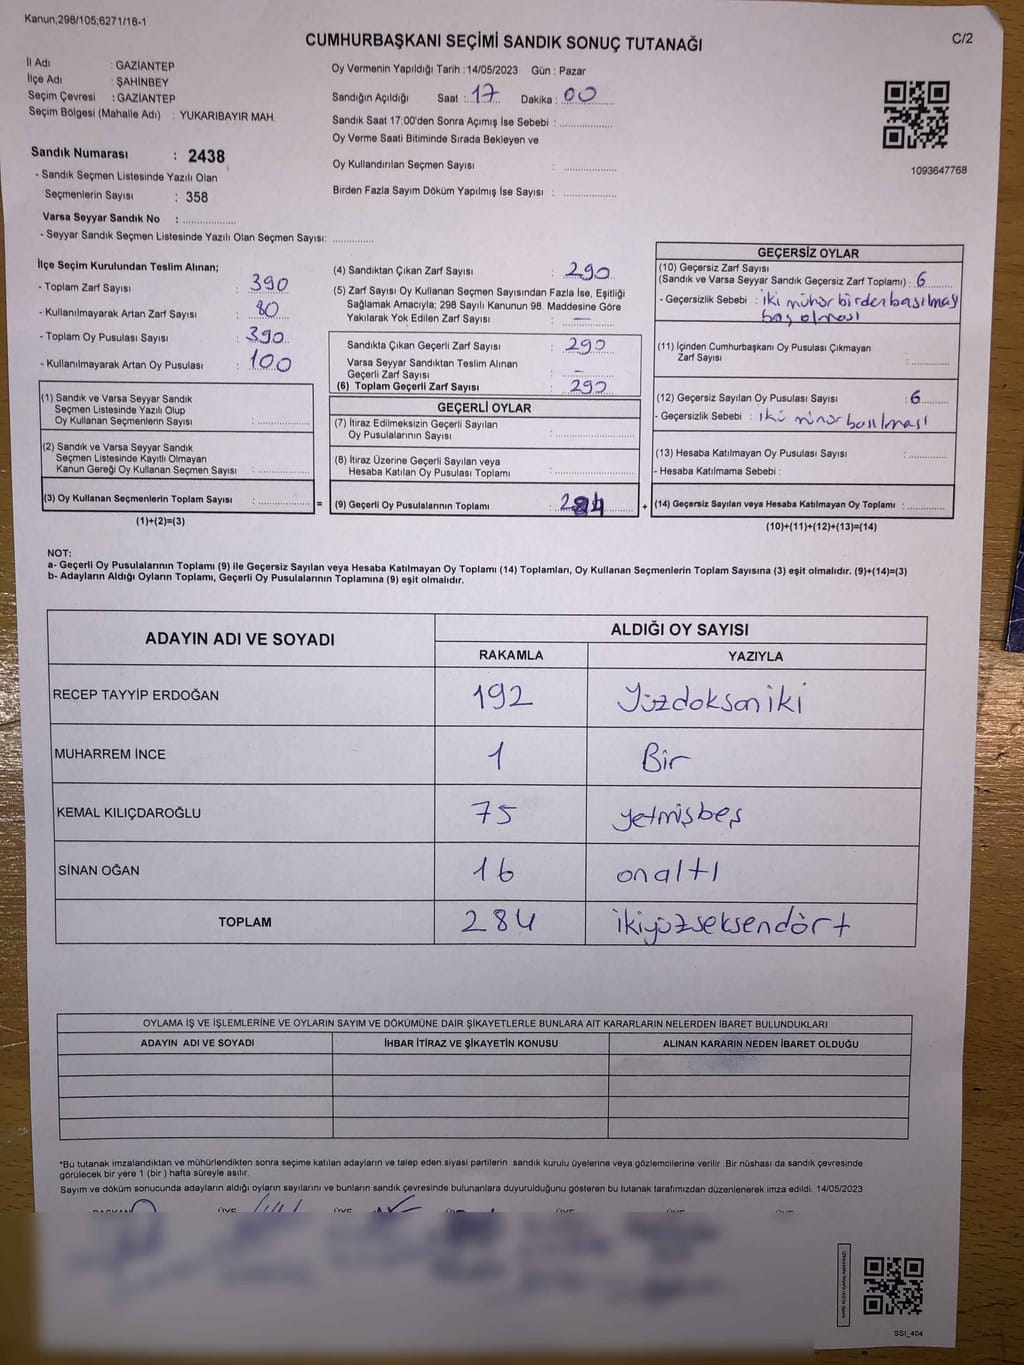 Kanun;298/105;6271/18-1
C/2
CUMHURBAŞKANI SEÇİMİ SANDIK SONUÇ TUTANAĞI
İl Adı : GAZİANTEP
İlçe Adı : ŞAHİNBEY
Seçim Çevresi : GAZİANTEP
Seçim Bölgesi (Mahalle Adı) : YUKARIBAYIR MAH.
Sandık Numarası : 2438
- Sandık Seçmen Listesinde Yazılı Olan
Seçmenlerin Sayısı : 358
Varsa Seyyar Sandık No : ..............
- Seyyar Sandık Seçmen Listesinde Yazılı Olan Seçmen Sayısı: ............
Oy Vermenin Yapıldığı Tarih :14/05/2023 Gün : Pazar
Sandığın Açıldığı Saat : 17 Dakika : 00
Sandık Saat 17:00'den Sonra Açımış İse Sebebi : ..............
Oy Verme Saati Bitiminde Sırada Bekleyen ve
Oy Kullandırılan Seçmen Sayısı : ..............
Birden Fazla Sayım Döküm Yapılmış İse Sayısı : ..............
1093647768
İlçe Seçim Kurulundan Teslim Alınan;
- Toplam Zarf Sayısı : 390
- Kullanılmayarak Artan Zarf Sayısı : 80
- Toplam Oy Pusulası Sayısı : 390
- Kullanılmayarak Artan Oy Pusulası : 100
(1) Sandık ve Varsa Seyyar Sandık
Seçmen Listesinde Yazılı Olup
Oy Kullanan Seçmenlerin Sayısı : ..............
(2) Sandık ve Varsa Seyyar Sandık
Seçmen Listesinde Kayıtlı Olmayan
Kanun Gereği Oy Kullanan Seçmen Sayısı : ..............
(3) Oy Kullanan Seçmenlerin Toplam Sayısı : .............. =
(1)+(2)=(3)
(4) Sandıktan Çıkan Zarf Sayısı : 290
(5) Zarf Sayısı Oy Kullanan Seçmen Sayısından Fazla İse, Eşitliği
Sağlamak Amacıyla; 298 Sayılı Kanunun 98. Maddesine Göre
Yakılarak Yok Edilen Zarf Sayısı : —
Sandıkta Çıkan Geçerli Zarf Sayısı : 290
Varsa Seyyar Sandıktan Teslim Alınan
Geçerli Zarf Sayısı : -
(6) Toplam Geçerli Zarf Sayısı : 290
GEÇERLİ OYLAR
(7) İtiraz Edilmeksizin Geçerli Sayılan
Oy Pusulalarının Sayısı : ..............
(8) İtiraz Üzerine Geçerli Sayılan veya
Hesaba Katılan Oy Pusulası Toplamı : ..............
(9) Geçerli Oy Pusulalarının Toplamı : 284 +
GEÇERSİZ OYLAR
(10) Geçersiz Zarf Sayısı
(Sandık ve Varsa Seyyar Sandık Geçersiz Zarf Toplamı) : 6
- Geçersizlik Sebebi : iki mühür birden basılmaş
boş olması
(11) İçinden Cumhurbaşkanı Oy Pusulası Çıkmayan
Zarf Sayısı : ..............
(12) Geçersiz Sayılan Oy Pusulası Sayısı : 6
- Geçersizlik Sebebi : iki mühür basılması
(13) Hesaba Katılmayan Oy Pusulası Sayısı : ..............
- Hesaba Katılmama Sebebi :
(14) Geçersiz Sayılan veya Hesaba Katılmayan Oy Toplamı : ..............
(10)+(11)+(12)+(13)=(14)
NOT:
a- Geçerli Oy Pusulalarının Toplamı (9) ile Geçersiz Sayılan veya Hesaba Katılmayan Oy Toplamı (14) Toplamları, Oy Kullanan Seçmenlerin Toplam Sayısına (3) eşit olmalıdır. (9)+(14)=(3)
b- Adayların Aldığı Oyların Toplamı, Geçerli Oy Pusulalarının Toplamına (9) eşit olmalıdır.
ADAYIN ADI VE SOYADI ALDIĞI OY SAYISI
RAKAMLA YAZIYLA
RECEP TAYYİP ERDOĞAN 192 Yüzdoksaniki
MUHARREM İNCE 1 Bir
KEMAL KILIÇDAROĞLU 75 yetmişbeş
SİNAN OĞAN 16 onaltı
TOPLAM 284 ikiyüzseksendört
OYLAMA İŞ VE İŞLEMLERİNE VE OYLARIN SAYIM VE DÖKÜMÜNE DAİR ŞİKAYETLERLE BUNLARA AİT KARARLARIN NELERDEN İBARET BULUNDUKLARI
ADAYIN ADI VE SOYADI İHBAR İTİRAZ VE ŞİKAYETİN KONUSU ALINAN KARARIN NEDEN İBARET OLDUĞU
*Bu tutanak imzalandıktan ve mühürlendikten sonra seçime katılan adayların ve talep eden siyasi partilerin sandık kurulu üyelerine veya gözlemcilerine verilir .Bir nüshası da sandık çevresinde
görülecek bir yere 1 (bir ) hafta süreyle asılır.
Sayım ve döküm sonucunda adayların aldığı oyların sayılarını ve bunların sandık çevresinde bulunanlara duyurulduğunu gösteren bu tutanak tarafımızdan düzenlenerek imza edildi. 14/05/2023
SSI_404